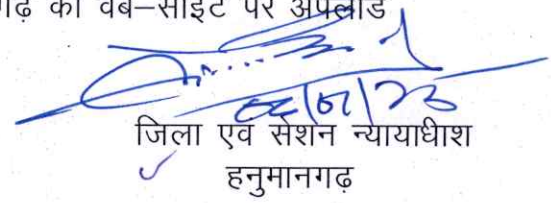 गढ़ की वेब–साइट पर अपलोड
जिला एवं सेशन न्यायाधीश
हनुमानगढ़